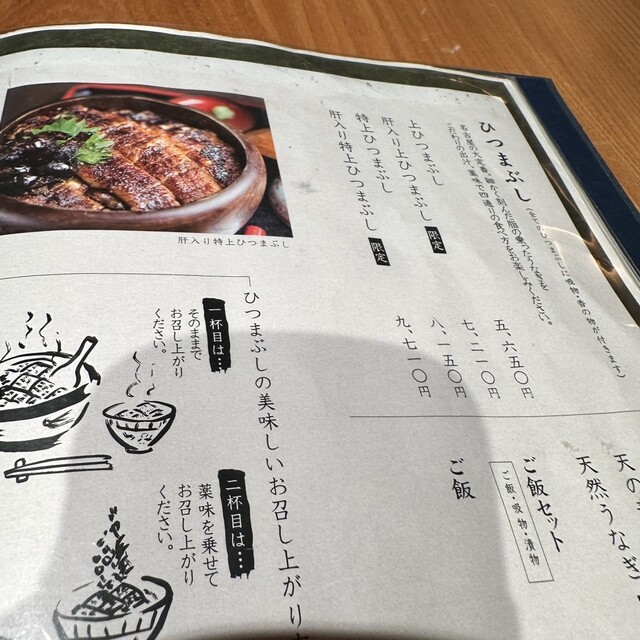 ひつまぶし
(全てのひつまぶしに吸物・香の物が付きます)
名古屋の大定番。細かく刻んだ脂の乗ったうなぎを
こだわりの出汁、薬味で四通りの食べ方をお楽しみください。
上ひつまぶし 五、六五〇円
肝入り上ひつまぶし 限定 七、二一〇円
特上ひつまぶし 八、一五〇円
肝入り特上ひつまぶし 限定 九、七一〇円
肝入り特上ひつまぶし
天然うなぎ
ご飯セット
ご飯・吸物・漬物
ご飯
ひつまぶしの美味しいお召し上がり
一杯目は…
そのままで
お召し上がり
ください。
二杯目は…
薬味を乗せて
お召し上がり
ください。